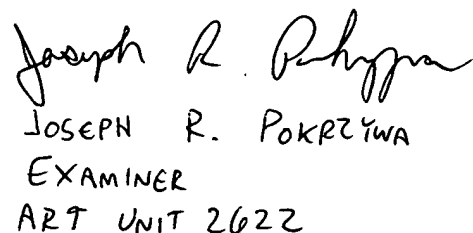 Joseph R. Pokrzywa
JOSEPH R. POKRZYWA
EXAMINER
ART UNIT 2622